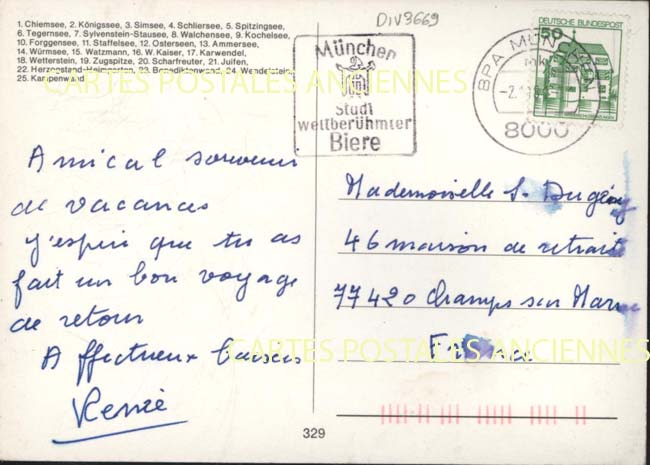 DIV9669
1. Chiemsee, 2. Königssee, 3. Simsee, 4. Schliersee, 5. Spitzingsee,
6. Tegernsee, 7. Sylvenstein-Stausee, 8. Walchensee, 9. Kochelsee,
10. Forggensee, 11. Staffelsee, 12. Ostersee, 13. Ammersee,
14. Würmsee, 15. Watzmann, 16. W. Kaiser, 17. Karwendel,
18. Wetterstein, 19. Zugspitze, 20. Scharfreuter, 21. Juifen,
22. Herzogstand-Heimgarten, 23. Benediktenwand, 24. Wendelstein,
25. Kampenwand
CARTES POSTALES ANCIENNES
München
Stadt
weltberühmter
Biere
BPA MÜNCHEN
8000
DEUTSCHE BUNDESPOST
50
Amical souvenir
de vacances
J'espère que tu as
fait un bon voyage
de retour
Affectueux baisers
Renée
Mademoiselle S.
46 maison de retraite
77420 Champs sur Marne
CARTES POSTALES ANCIENNES
329